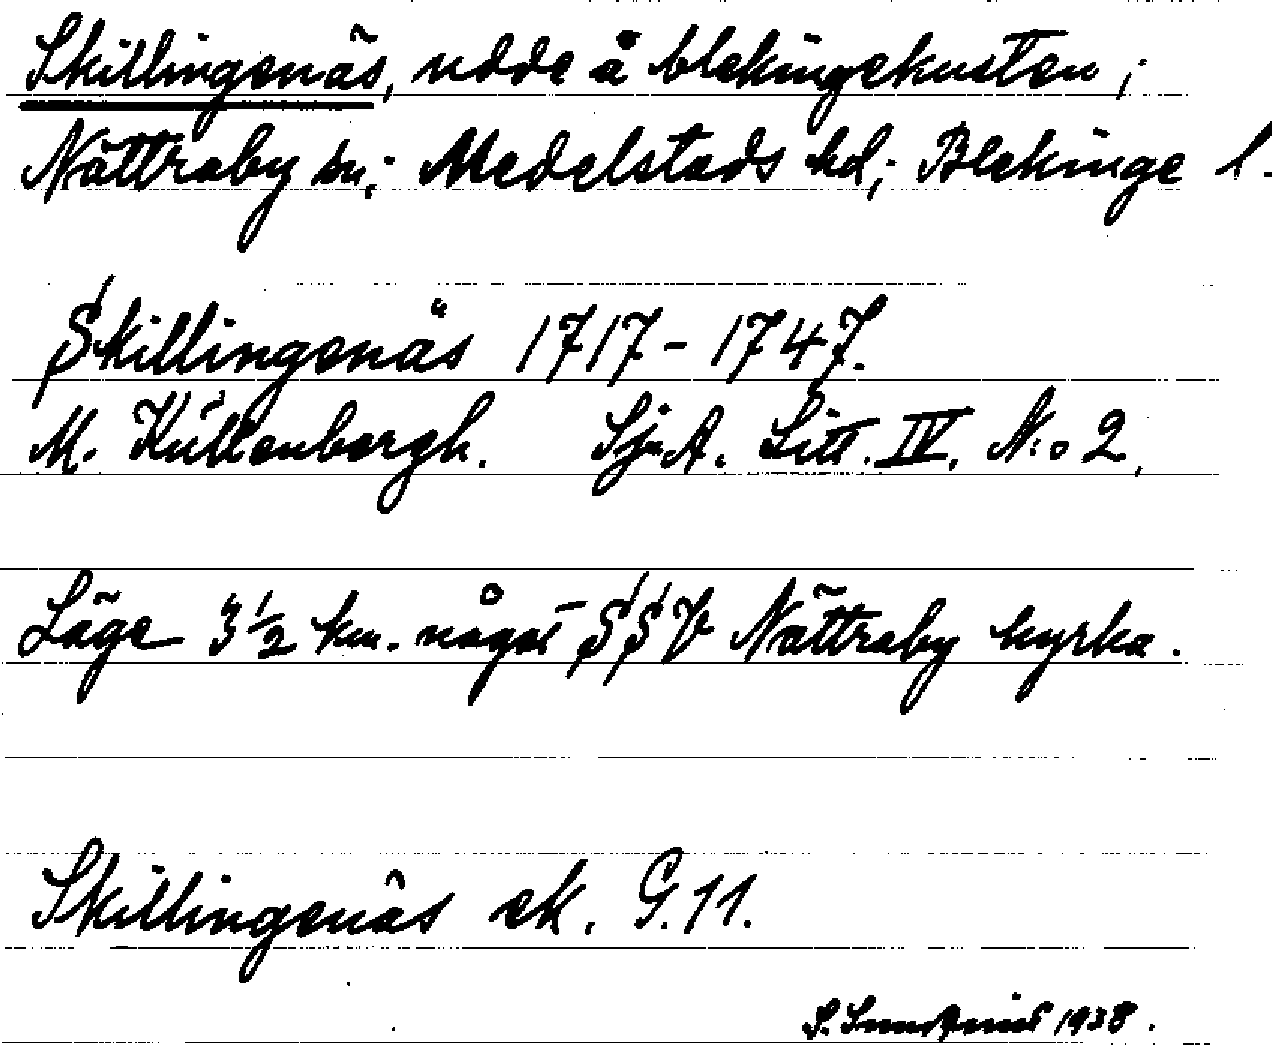 Skillingenäs, udde å blekingekusten;
Nättraby sn; Medelstads hd; Blekinge l.
Skillingenäs 1717-1747.
M. Küllenbergh. Sj.A. Litt. IV. N:o 2.
Läge 3 1/2 km. något SSV Nättraby kyrka.
Skillingenäs ek. G.11.
S. 1938.